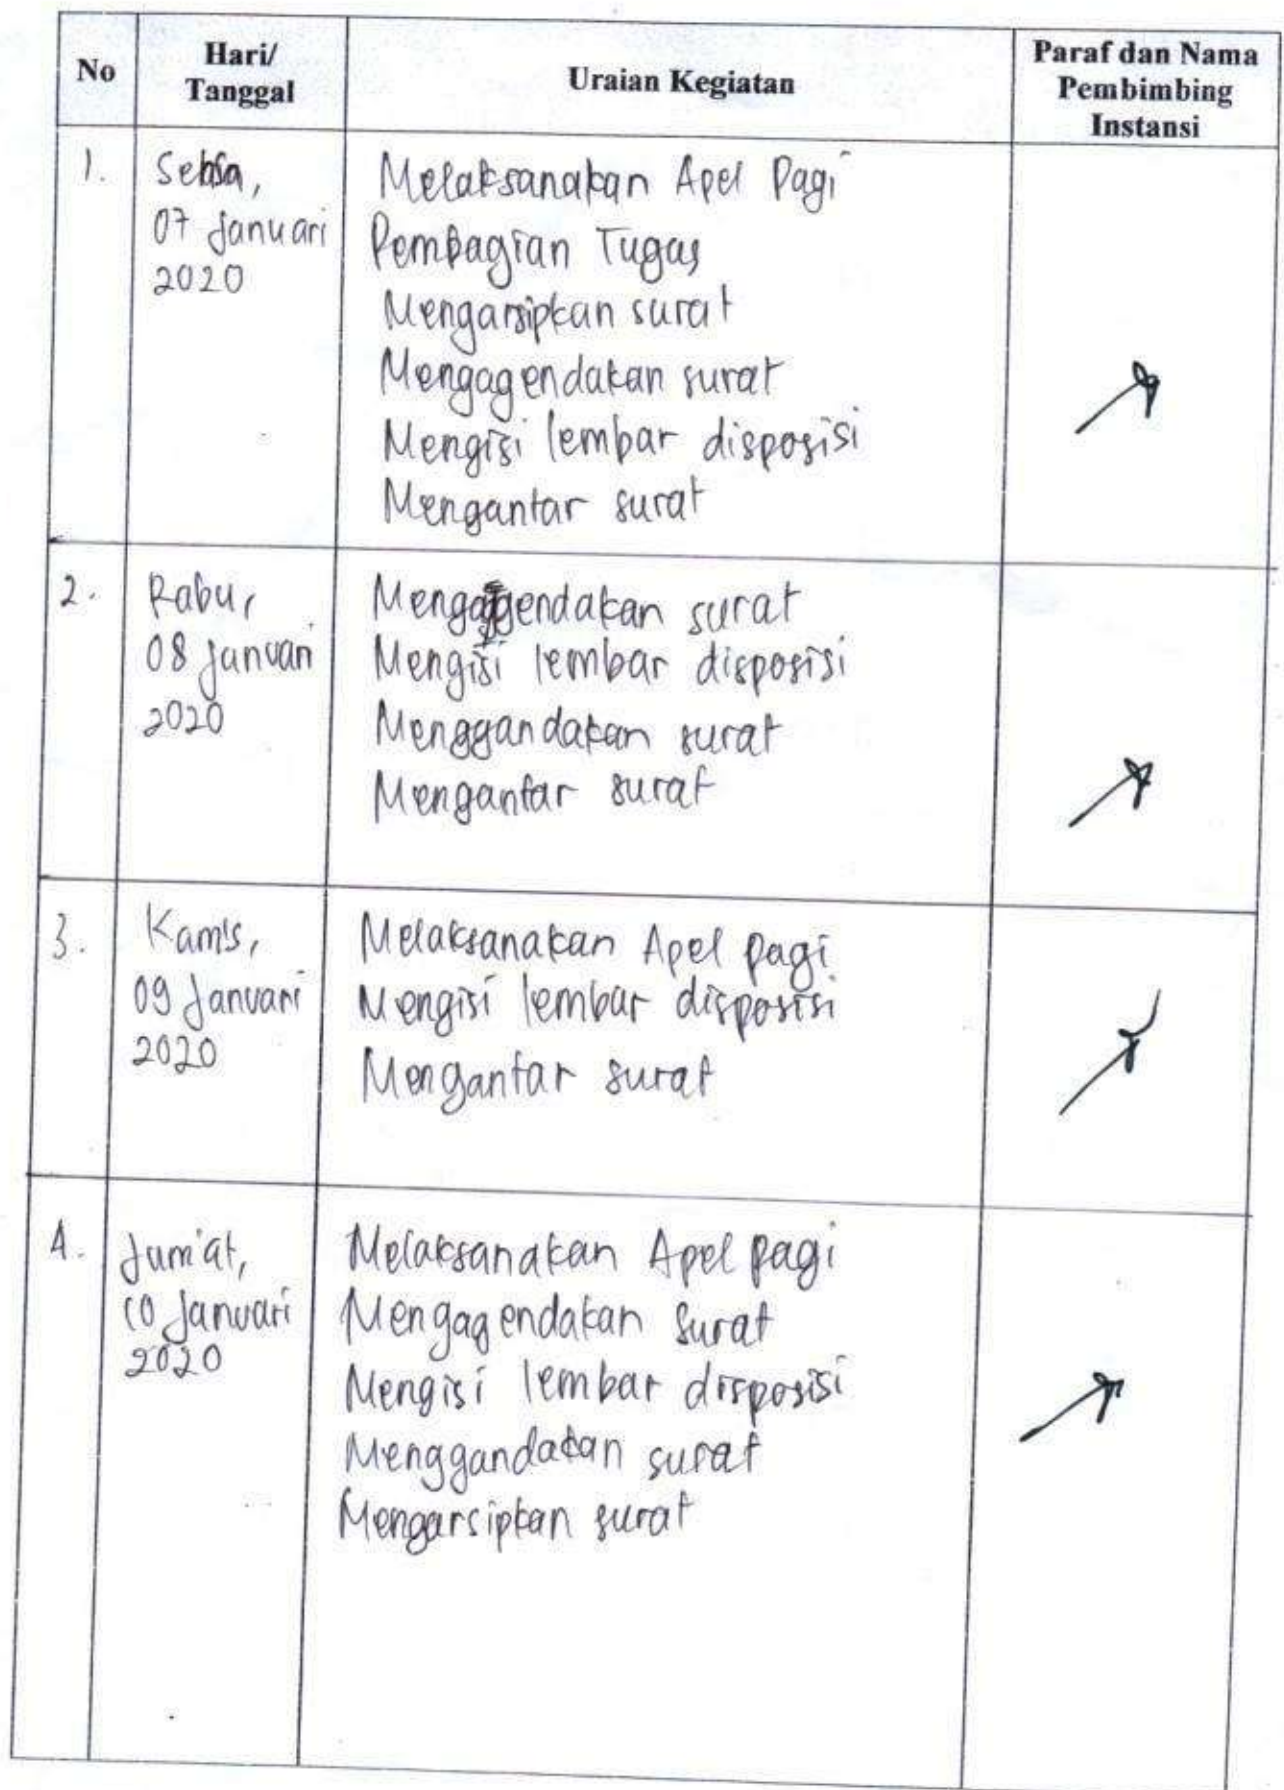 No
Hari/
Tanggal
Uraian Kegiatan
Paraf dan Nama
Pembimbing
Instansi
1.
Selasa,
07 Januari
2020
Melaksanakan Apel Pagi
Pembagian Tugas
Mengarsipkan surat
Mengagendakan surat
Mengisi lembar disposisi
Mengantar surat
2.
Rabu,
08 Januari
2020
Mengagendakan surat
Mengisi lembar disposisi
Menggandakan surat
Mengantar surat
3.
Kamis,
09 Januari
2020
Melaksanakan Apel pagi
Mengisi lembar disposisi
Mengantar surat
4.
Jum'at,
10 Januari
2020
Melaksanakan Apel pagi
Mengagendakan Surat
Mengisi lembar disposisi
Menggandakan surat
Mengarsipkan surat